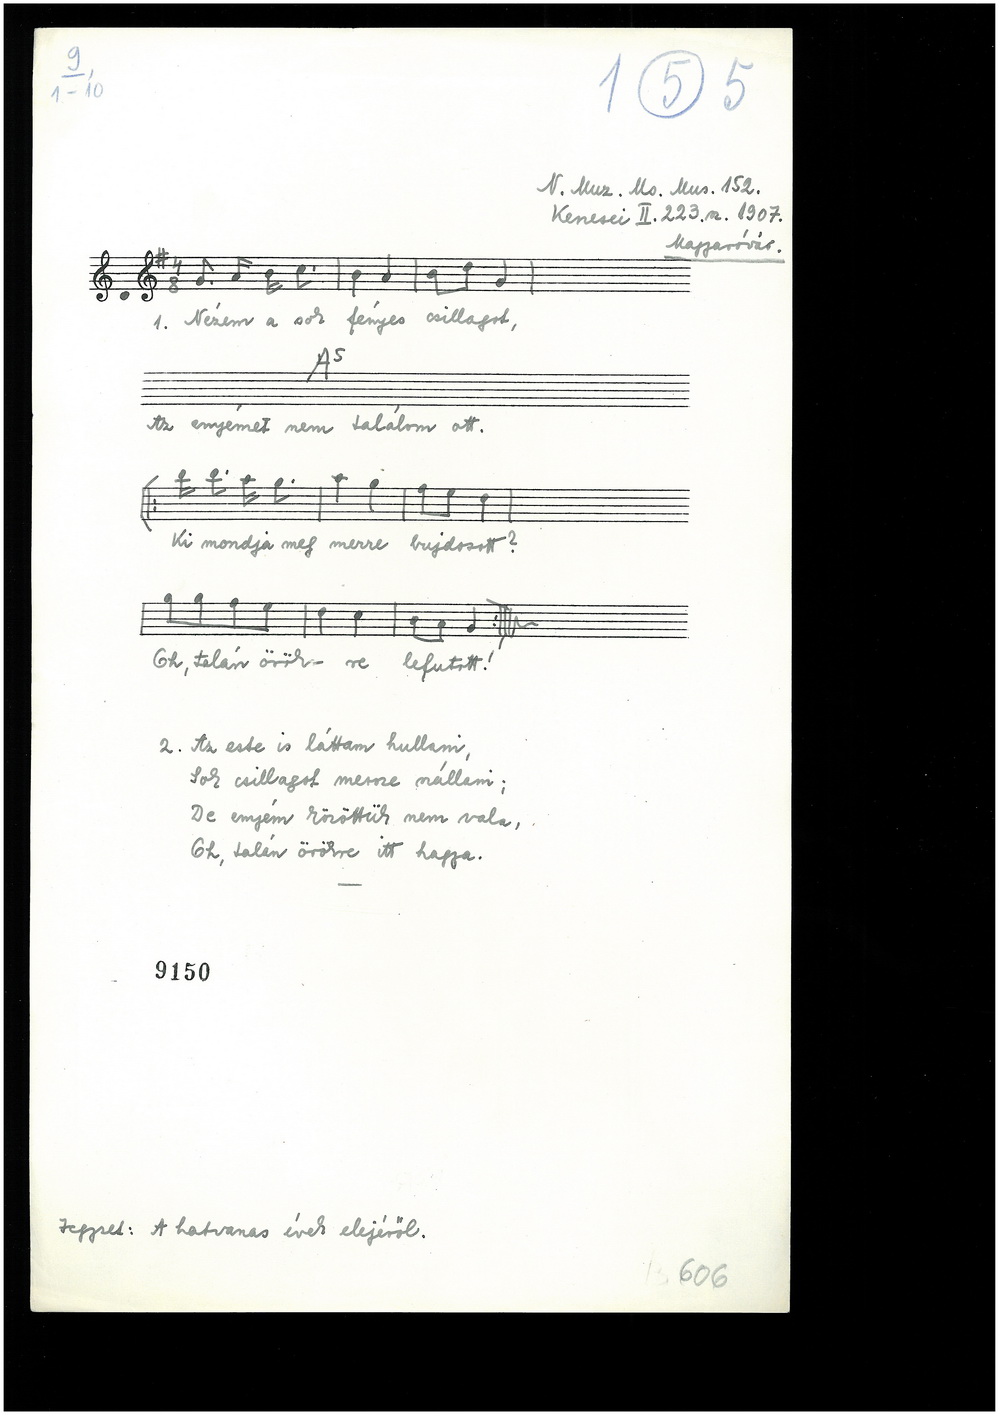 9
1-10
1 5 5
N. Muz. Ms. Mus. 152.
Kenesei II. 223.n. 1907.
Magyaróvár.
4
8
1. Nézem a sok fényes csillagot,
A5
Az enyémet nem találom ott.
Ki mondja meg merre bujdosott?
Oh, talán örök- re lefutott!
2. Az este is láttam hullani,
Sok csillagot messze szállani;
De enyém közöttük nem vala,
Oh, talán örökre itt hagya.
9150
Jegyzet: A hatvanas évek elejéről.
606